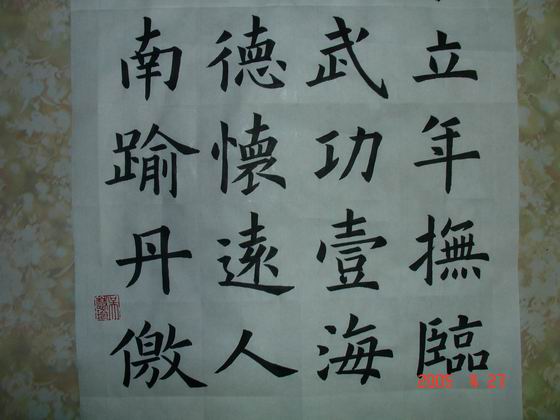 立年撫臨
武功壹海
德懷遠人
南踰丹儌
2005 8 27